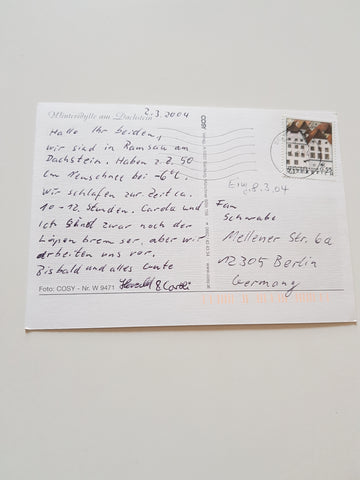 Winteridylle am Dachstein
2.3.2004
Hallo Ihr beiden,
wir sind in Ramsau am
Dachstein. Haben z.B. 50
cm Neuschnee bei -6°C.
Wir schlafen zur Zeit ca.
10-12 Stunden. Carola und
ich sind zwar noch der
Loipen bremser, aber wir
arbeiten uns vor.
Bis bald und alles Gute
Harald &
Foto: COSY - Nr. W 9471
COSY
8.3.04
Fam
Schwabe
Mellener Str. 6a
12305 Berlin
Germany